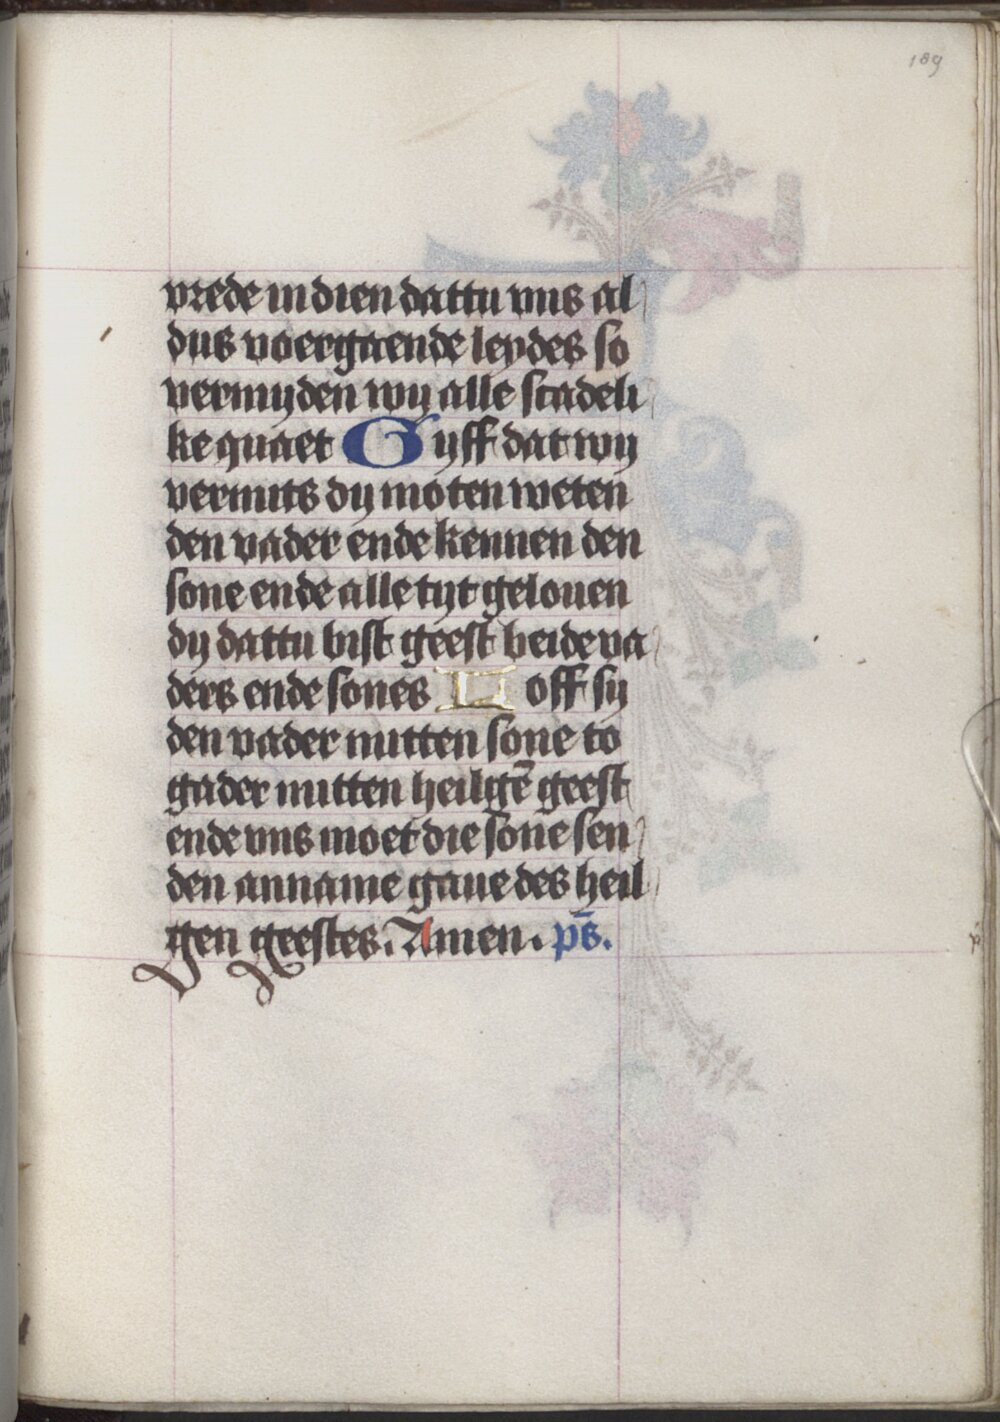 189
vrede in dien dattu vns al
dus voergaende leydes so
vermyden wy alle scadeli
ke quaet Gyff dat wy
vermits dy moten weten
den vader ende kennen den
sone ende alle tyt gelouen
dy dattu bist geest beide va
ders ende sones Loff sy
den vader mitten sone to
gader mitten heilgē geest
ende vns moet die sone sen
den anname gaue des heil
gen geestes. Amen. ps̄.